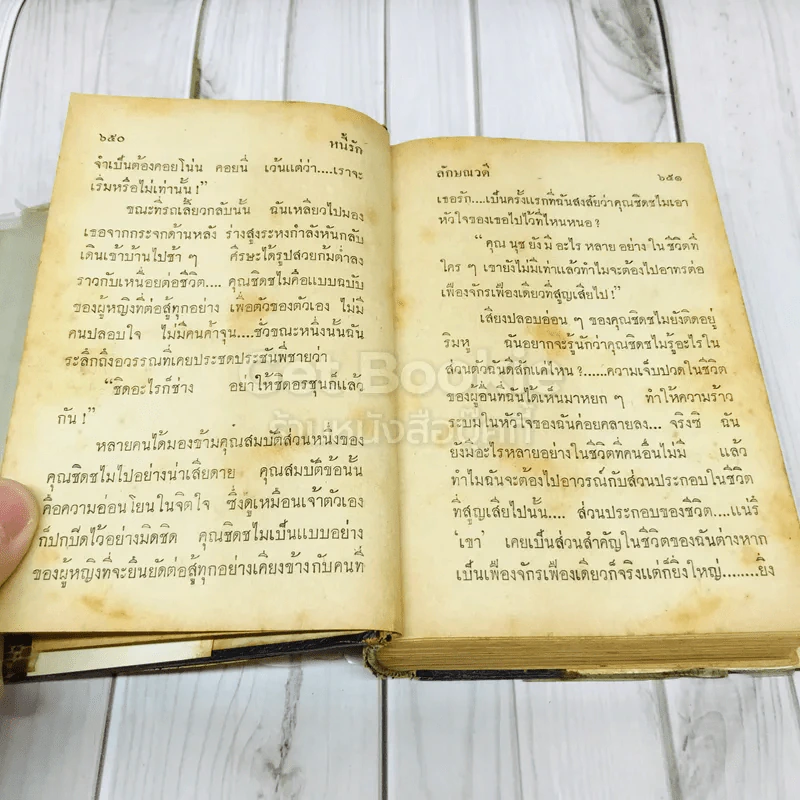 ๖๕๐ หนี้รัก
จำเป็นต้องคอยโน่น คอยนี่ เว้นแต่ว่า....เราจะ
เริ่มหรือไม่เท่านั้น !”
ขณะที่รถเลี้ยวกลับนั้น ฉันเหลียวไปมอง
เธอจากกระจกด้านหลัง ร่างสูงระหงกำลังหันกลับ
เดินเข้าบ้านไปช้า ๆ ศีรษะได้รูปสวยก้มต่ำลง
ราวกับเหนื่อยต่อชีวิต.... คุณชิดชไมคือแบบฉบับ
ของผู้หญิงที่ต่อสู้ทุกอย่าง เพื่อตัวของตัวเอง ไม่มี
คนปลอบใจ ไม่มีคนค้ำจุน....ชั่วขณะหนึ่งนั้นฉัน
ระลึกถึงอวรรณที่เคยประชดประชันพี่ชายว่า
“ชิดอะไรก็ช่าง อย่าให้ชิดอรชุนก็แล้ว
กัน !”
หลายคนได้มองข้ามคุณสมบัติส่วนหนึ่งของ
คุณชิดชไมไปอย่างน่าเสียดาย คุณสมบัติข้อนั้น
คือความอ่อนโยนในจิตใจ ซึ่งดูเหมือนเจ้าตัวเอง
ก็ปกปิดไว้อย่างมิดชิด คุณชิดชไมเป็นแบบอย่าง
ของผู้หญิงที่จะยืนยัดต่อสู้ทุกอย่างเคียงข้างกับคนที่
ลักษณวดี ๖๕๑
เธอรัก....เป็นครั้งแรกที่ฉันสงสัยว่าคุณชิดชไมเอา
หัวใจของเธอไปไว้ที่ไหนหนอ ?
“ คุณ นุช ยัง มี อะไร หลาย อย่าง ใน ชีวิตที่
ใคร ๆ เขายังไม่มีเท่าแล้วทำไมจะต้องไปอาทรต่อ
เฟืองจักรเฟืองเดียวที่สูญเสียไป !”
เสียงปลอบอ่อน ๆ ของคุณชิดชไมยังติดอยู่
ริมหู ฉันอยากจะรู้นักว่าคุณชิดชไมรู้อะไรใน
ส่วนตัวฉันดีสักแค่ไหน ?......ความเจ็บปวดในชีวิต
ของผู้อื่นที่ฉันได้เห็นมาหยก ๆ ทำให้ความร้าว
ระบมในหัวใจของฉันค่อยคลายลง... จริงซิ ฉัน
ยังมีอะไรหลายอย่างในชีวิตที่คนอื่นไม่มี แล้ว
ทำไมฉันจะต้องไปอาวรณ์กับส่วนประกอบในชีวิต
ที่สูญเสียไปนั้น.... ส่วนประกอบของชีวิต....แน่ล่ะ
‘เขา’ เคยเป็นส่วนสำคัญในชีวิตของฉันต่างหาก
เป็นเฟืองจักรเฟืองเดียวก็จริงแต่ก็ยิ่งใหญ่........ยิ่ง
ร้านหนังสือเก็ท